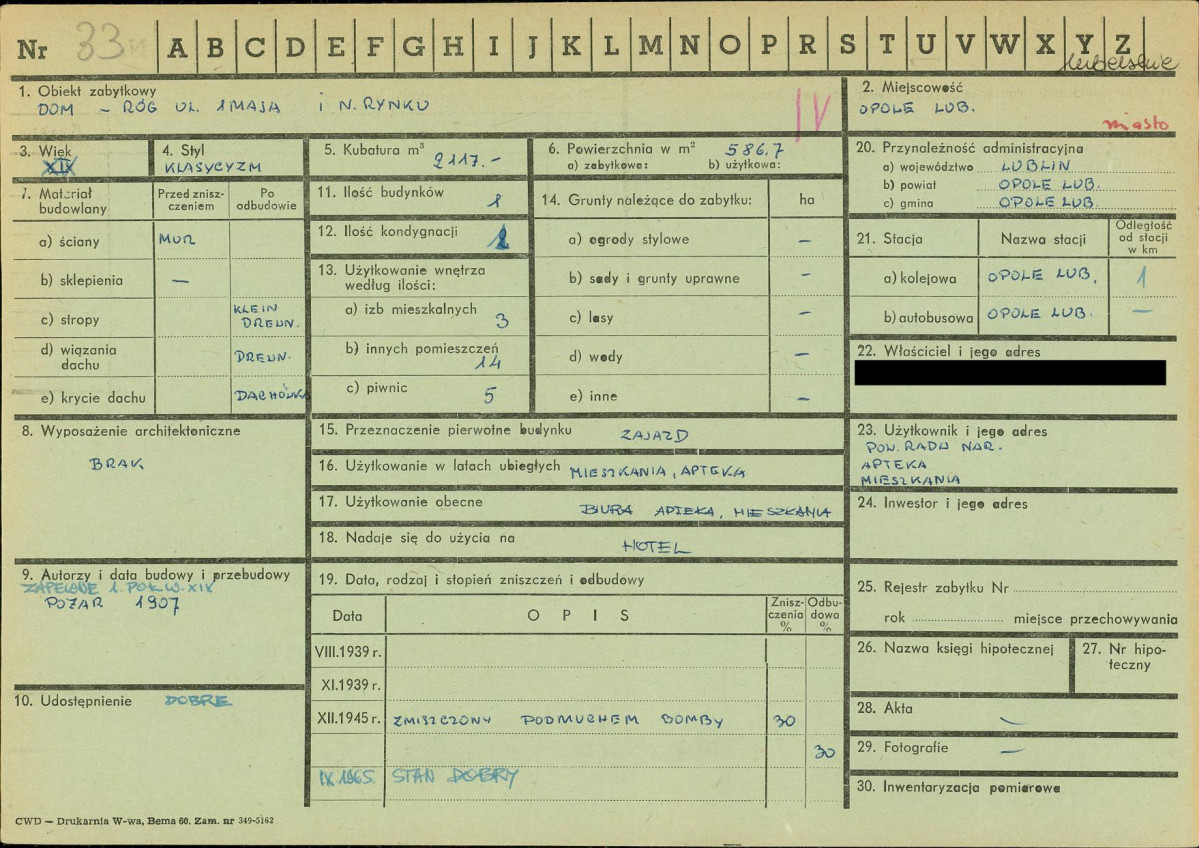 Nr 33
A B C D E F G H I J K L M N O P R S T U V W X Y Z
lubelskie
1. Obiekt zabytkowy
DOM – RÓG UL. 1 MAJA I N. RYNKU
IV
2. Miejscowość
OPOLE LUB.
miasto
3. Wiek
XIX
4. Styl
KLASYCYZM
5. Kubatura m³
2117.-
6. Powierzchnia w m² 586,7
a) zabytkowa: b) użytkowa:
20. Przynależność administracyjna
a) województwo LUBLIN
b) powiat OPOLE LUB.
c) gmina OPOLE LUB.
7. Materiał budowlany
Przed zniszczeniem
Po odbudowie
a) ściany MUR
b) sklepienia —
c) stropy KLEIN DREWN.
d) wiązania dachu DREWN.
e) krycie dachu DACHÓWKA
11. Ilość budynków 1
12. Ilość kondygnacji 2
13. Użytkowanie wnętrza według ilości:
a) izb mieszkalnych 3
b) innych pomieszczeń 14
c) piwnic 5
14. Grunty należące do zabytku: ha
a) ogrody stylowe –
b) sady i grunty uprawne –
c) lasy –
d) wody –
e) inne –
21. Stacja
Nazwa stacji
Odległość od stacji w km
a) kolejowa OPOLE LUB. 1
b) autobusowa OPOLE LUB. —
22. Właściciel i jego adres
8. Wyposażenie architektoniczne
BRAK
15. Przeznaczenie pierwotne budynku ZAJAZD
16. Użytkowanie w latach ubiegłych MIESZKANIA, APTEKA
17. Użytkowanie obecne BIURA APTEKA, MIESZKANIA
18. Nadaje się do użycia na HOTEL
23. Użytkownik i jego adres
POW. RADA NAR.
APTEKA
MIESZKANIA
24. Inwestor i jego adres
9. Autorzy i data budowy i przebudowy
ZAPEWNE 1. POŁ. W. XIX
POŻAR 1907
10. Udostępnienie DOBRE
19. Data, rodzaj i stopień zniszczeń i odbudowy
Data
OPIS
Zniszczenia %
Odbudowa %
VIII.1939 r.
XI.1939 r.
XII.1945 r. ZNISZCZONY PODMUCHEM BOMBY 30
30
IX.1965. STAN DOBRY
25. Rejestr zabytku Nr
rok miejsce przechowywania
26. Nazwa księgi hipotecznej
27. Nr hipoteczny
28. Akta —
29. Fotografie —
30. Inwentaryzacja pomiarowa
CWD — Drukarnia W-wa, Bema 60. Zam. nr 349-5162